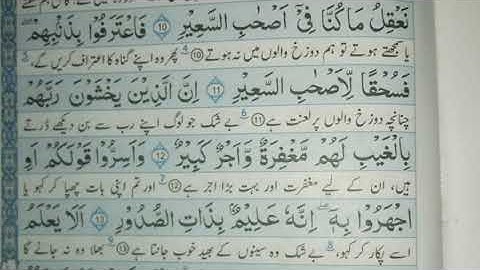 نَعْقِلُ مَا كُنَّا فِىْۤ اَصْحٰبِ السَّعِيْرِ ۝۱۰ فَاعْتَرَفُوْا بِذَنْۢبِهِمْ ۚ
یا سمجھتے ہوتے تو ہم دوزخ والوں میں نہ ہوتے ۱۰ پھر وہ اپنے گناہ کا اعتراف کریں گے،
فَسُحْقًا لِّاَصْحٰبِ السَّعِيْرِ ۝۱۱ اِنَّ الَّذِيْنَ يَخْشَوْنَ رَبَّهُمْ
چنانچہ دوزخ والوں پر لعنت ہے ۱۱ بے شک جو لوگ اپنے رب سے بن دیکھے ڈرتے
بِالْغَيْبِ لَهُمْ مَّغْفِرَةٌ وَّاَجْرٌ كَبِيْرٌ ۝۱۲ وَاَسِرُّوْا قَوْلَكُمْ اَوِ
ہیں، ان کے لیے مغفرت اور بہت بڑا اجر ہے ۱۲ اور تم اپنی بات چھپا کر کہو یا
اجْهَرُوْا بِهٖ ؕ اِنَّهٗ عَلِيْمٌۢ بِذَاتِ الصُّدُوْرِ ۝۱۳ اَلَا يَعْلَمُ
اسے پکار کر کہو، بے شک وہ سینوں کے بھید خوب جانتا ہے ۱۳ بھلا وہ نہ جانے گا